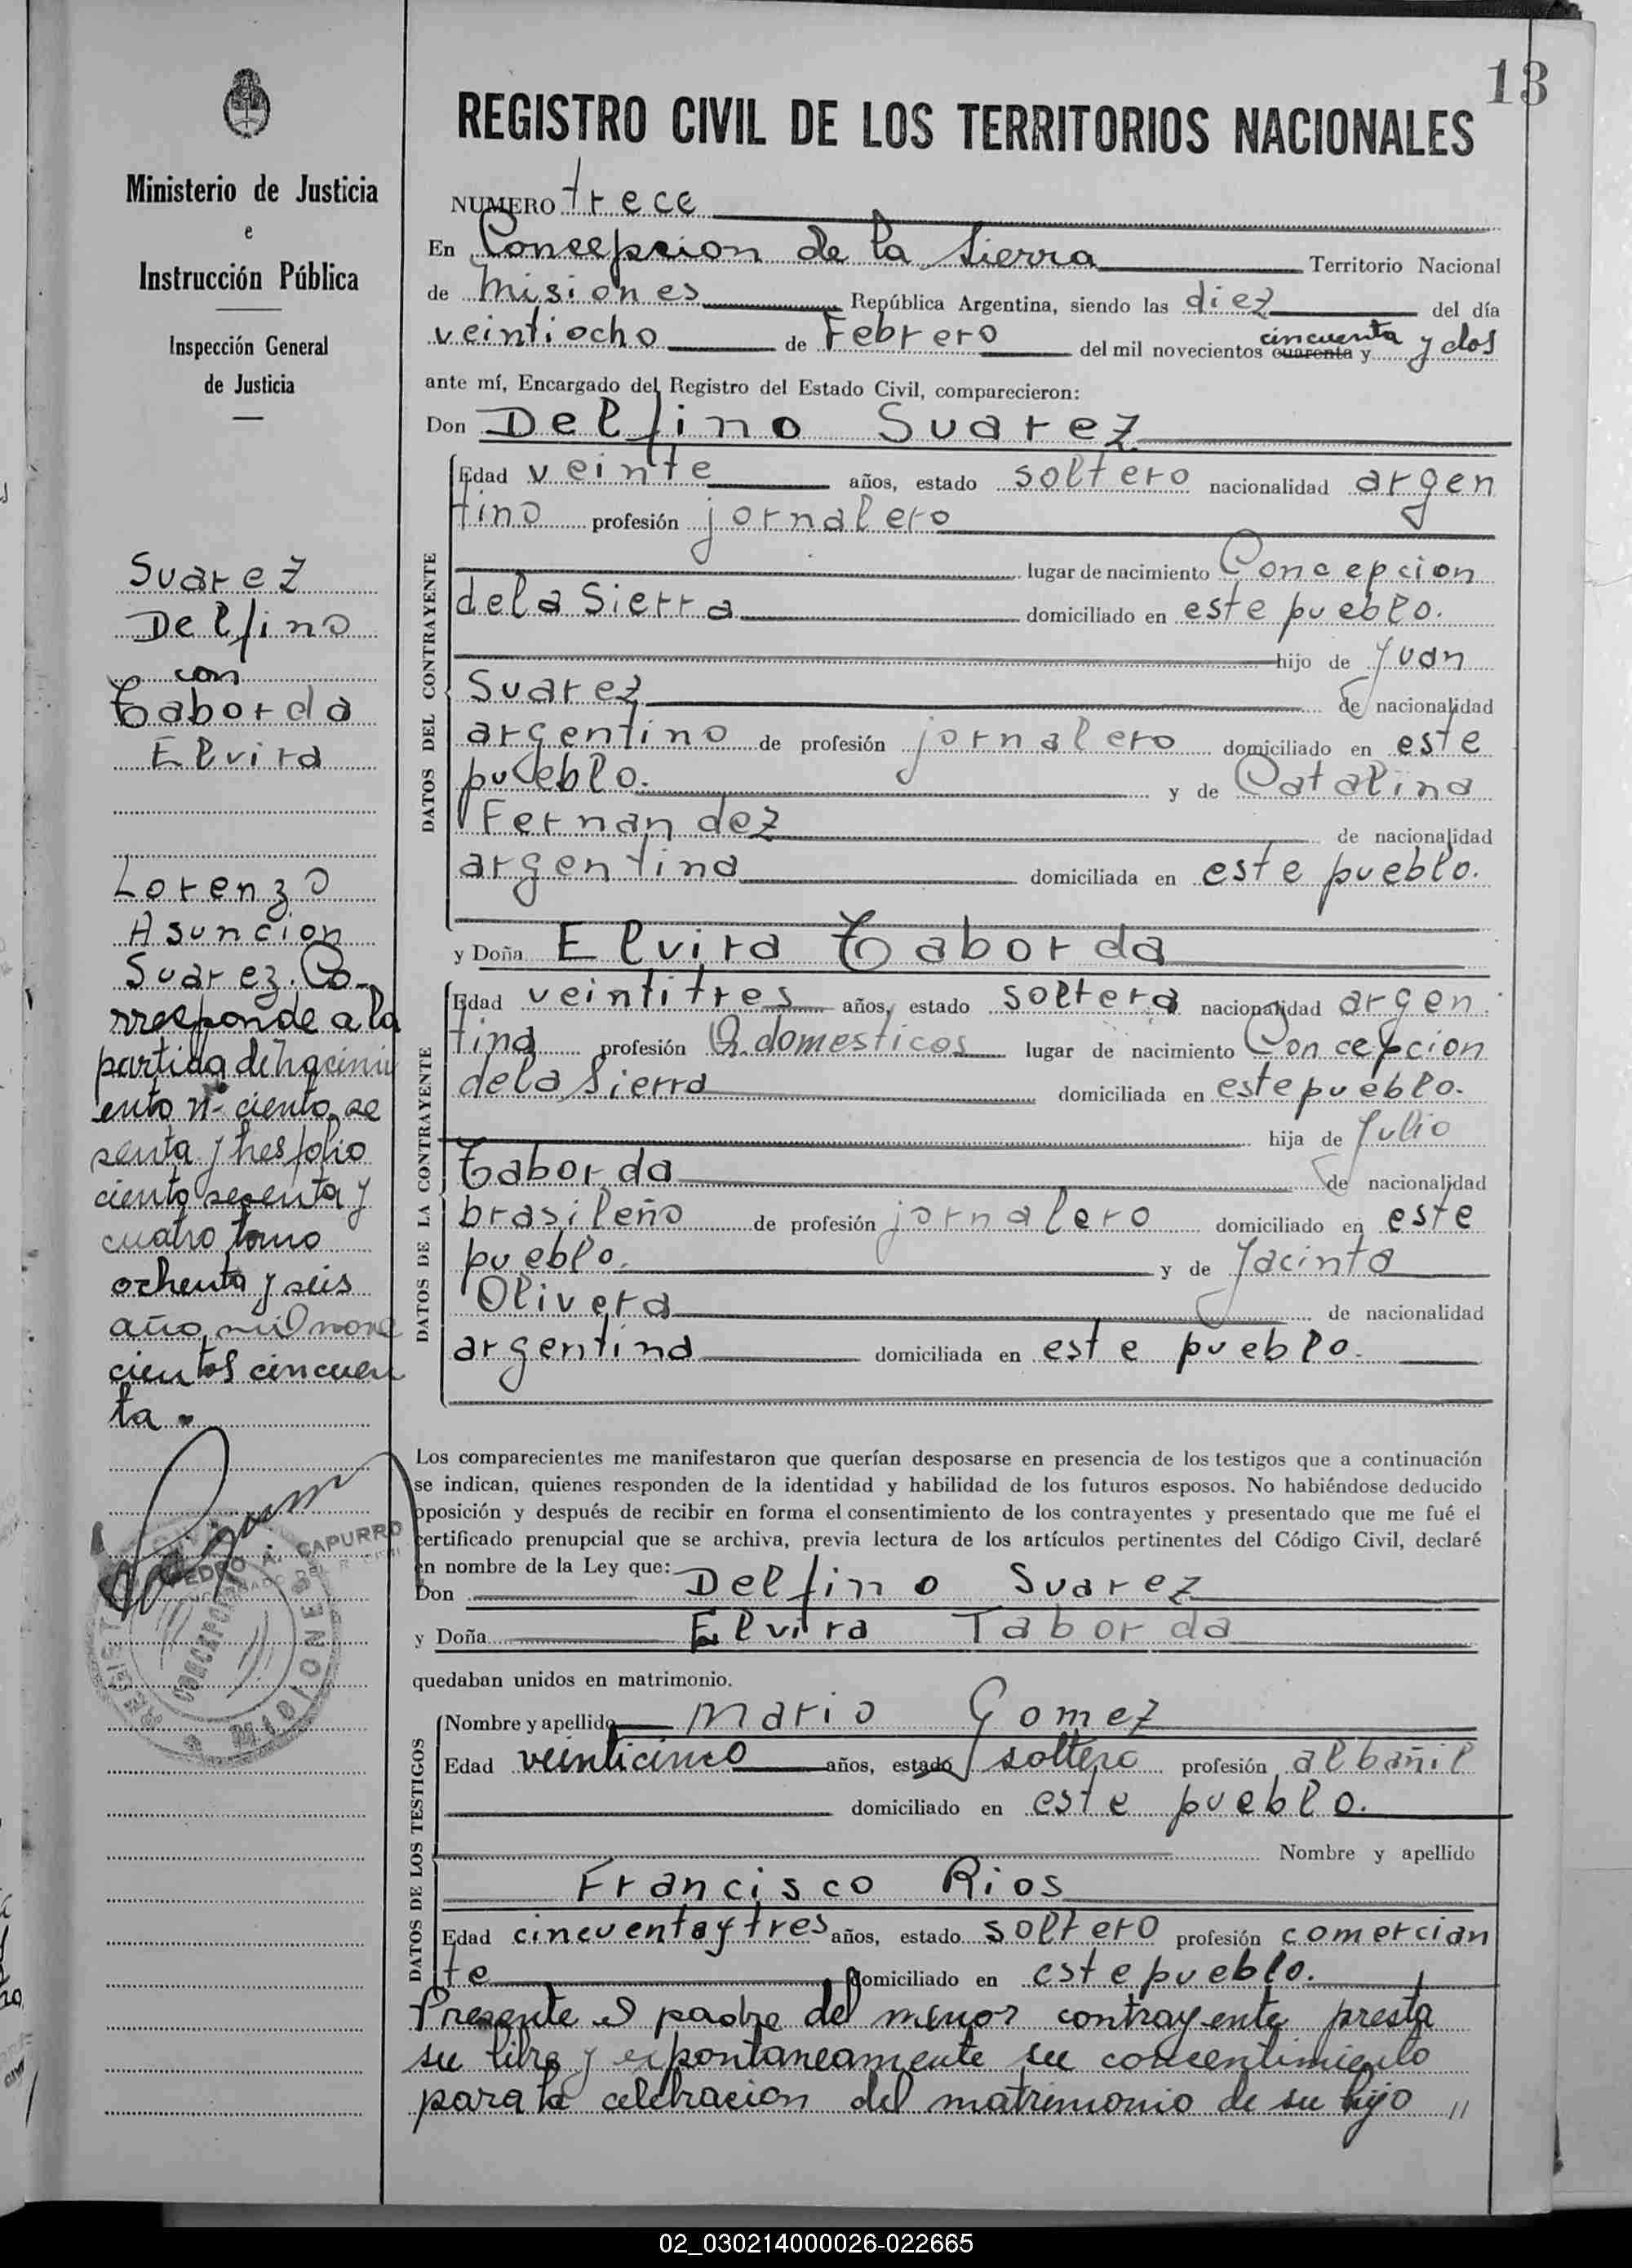 13
REGISTRO CIVIL DE LOS TERRITORIOS NACIONALES
Ministerio de Justicia
e
Instrucción Pública
Inspección General
de Justicia
Suarez
Delfino
con
Taborda
Elvira
Lorenzo
Asuncion
Suarez. Co-
rresponde a la
partida de nacimi
ento nº ciento se
senta y tres folio
ciento sesenta y
cuatro tomo
ochenta y seis
año mil nove
cientos cincuen
ta.
PEDRO A. CAPURRO
NUMERO trece
En Concepcion de la Sierra Territorio Nacional
de Misiones República Argentina, siendo las diez del día
veintiocho de Febrero del mil novecientos cuarenta y cincuenta y dos
ante mí, Encargado del Registro del Estado Civil, comparecieron:
Don Delfino Suarez
DATOS DEL CONTRAYENTE
Edad veinte años, estado soltero nacionalidad argen
tino profesión jornalero
lugar de nacimiento Concepcion
de la Sierra domiciliado en este pueblo.
hijo de Juan
Suarez de nacionalidad
argentino de profesión jornalero domiciliado en este
pueblo. y de Catalina
Fernandez de nacionalidad
argentina domiciliada en este pueblo.
y Doña Elvira Taborda
DATOS DE LA CONTRAYENTE
Edad veintitres años, estado soltera nacionalidad argen
tina profesión Q. domesticos lugar de nacimiento Concepcion
de la Sierra domiciliada en este pueblo.
hija de Julio
Taborda de nacionalidad
brasileño de profesión jornalero domiciliado en este
pueblo. y de Jacinta
Olivera de nacionalidad
argentina domiciliada en este pueblo.
Los comparecientes me manifestaron que querían desposarse en presencia de los testigos que a continuación
se indican, quienes responden de la identidad y habilidad de los futuros esposos. No habiéndose deducido
oposición y después de recibir en forma el consentimiento de los contrayentes y presentado que me fué el
certificado prenupcial que se archiva, previa lectura de los artículos pertinentes del Código Civil, declaré
en nombre de la Ley que:
Don Delfino Suarez
y Doña Elvira Taborda
quedaban unidos en matrimonio.
DATOS DE LOS TESTIGOS
Nombre y apellido Mario Gomez
Edad veinticinco años, estado soltero profesión albañil
domiciliado en este pueblo.
Nombre y apellido
Francisco Rios
Edad cincuenta y tres años, estado soltero profesión comercian
te domiciliado en este pueblo.
Presente el padre del menor contrayente presta
su libre y expontaneamente su concentimiento
para la celebracion del matrimonio de su hijo "
02_030214000026-022665